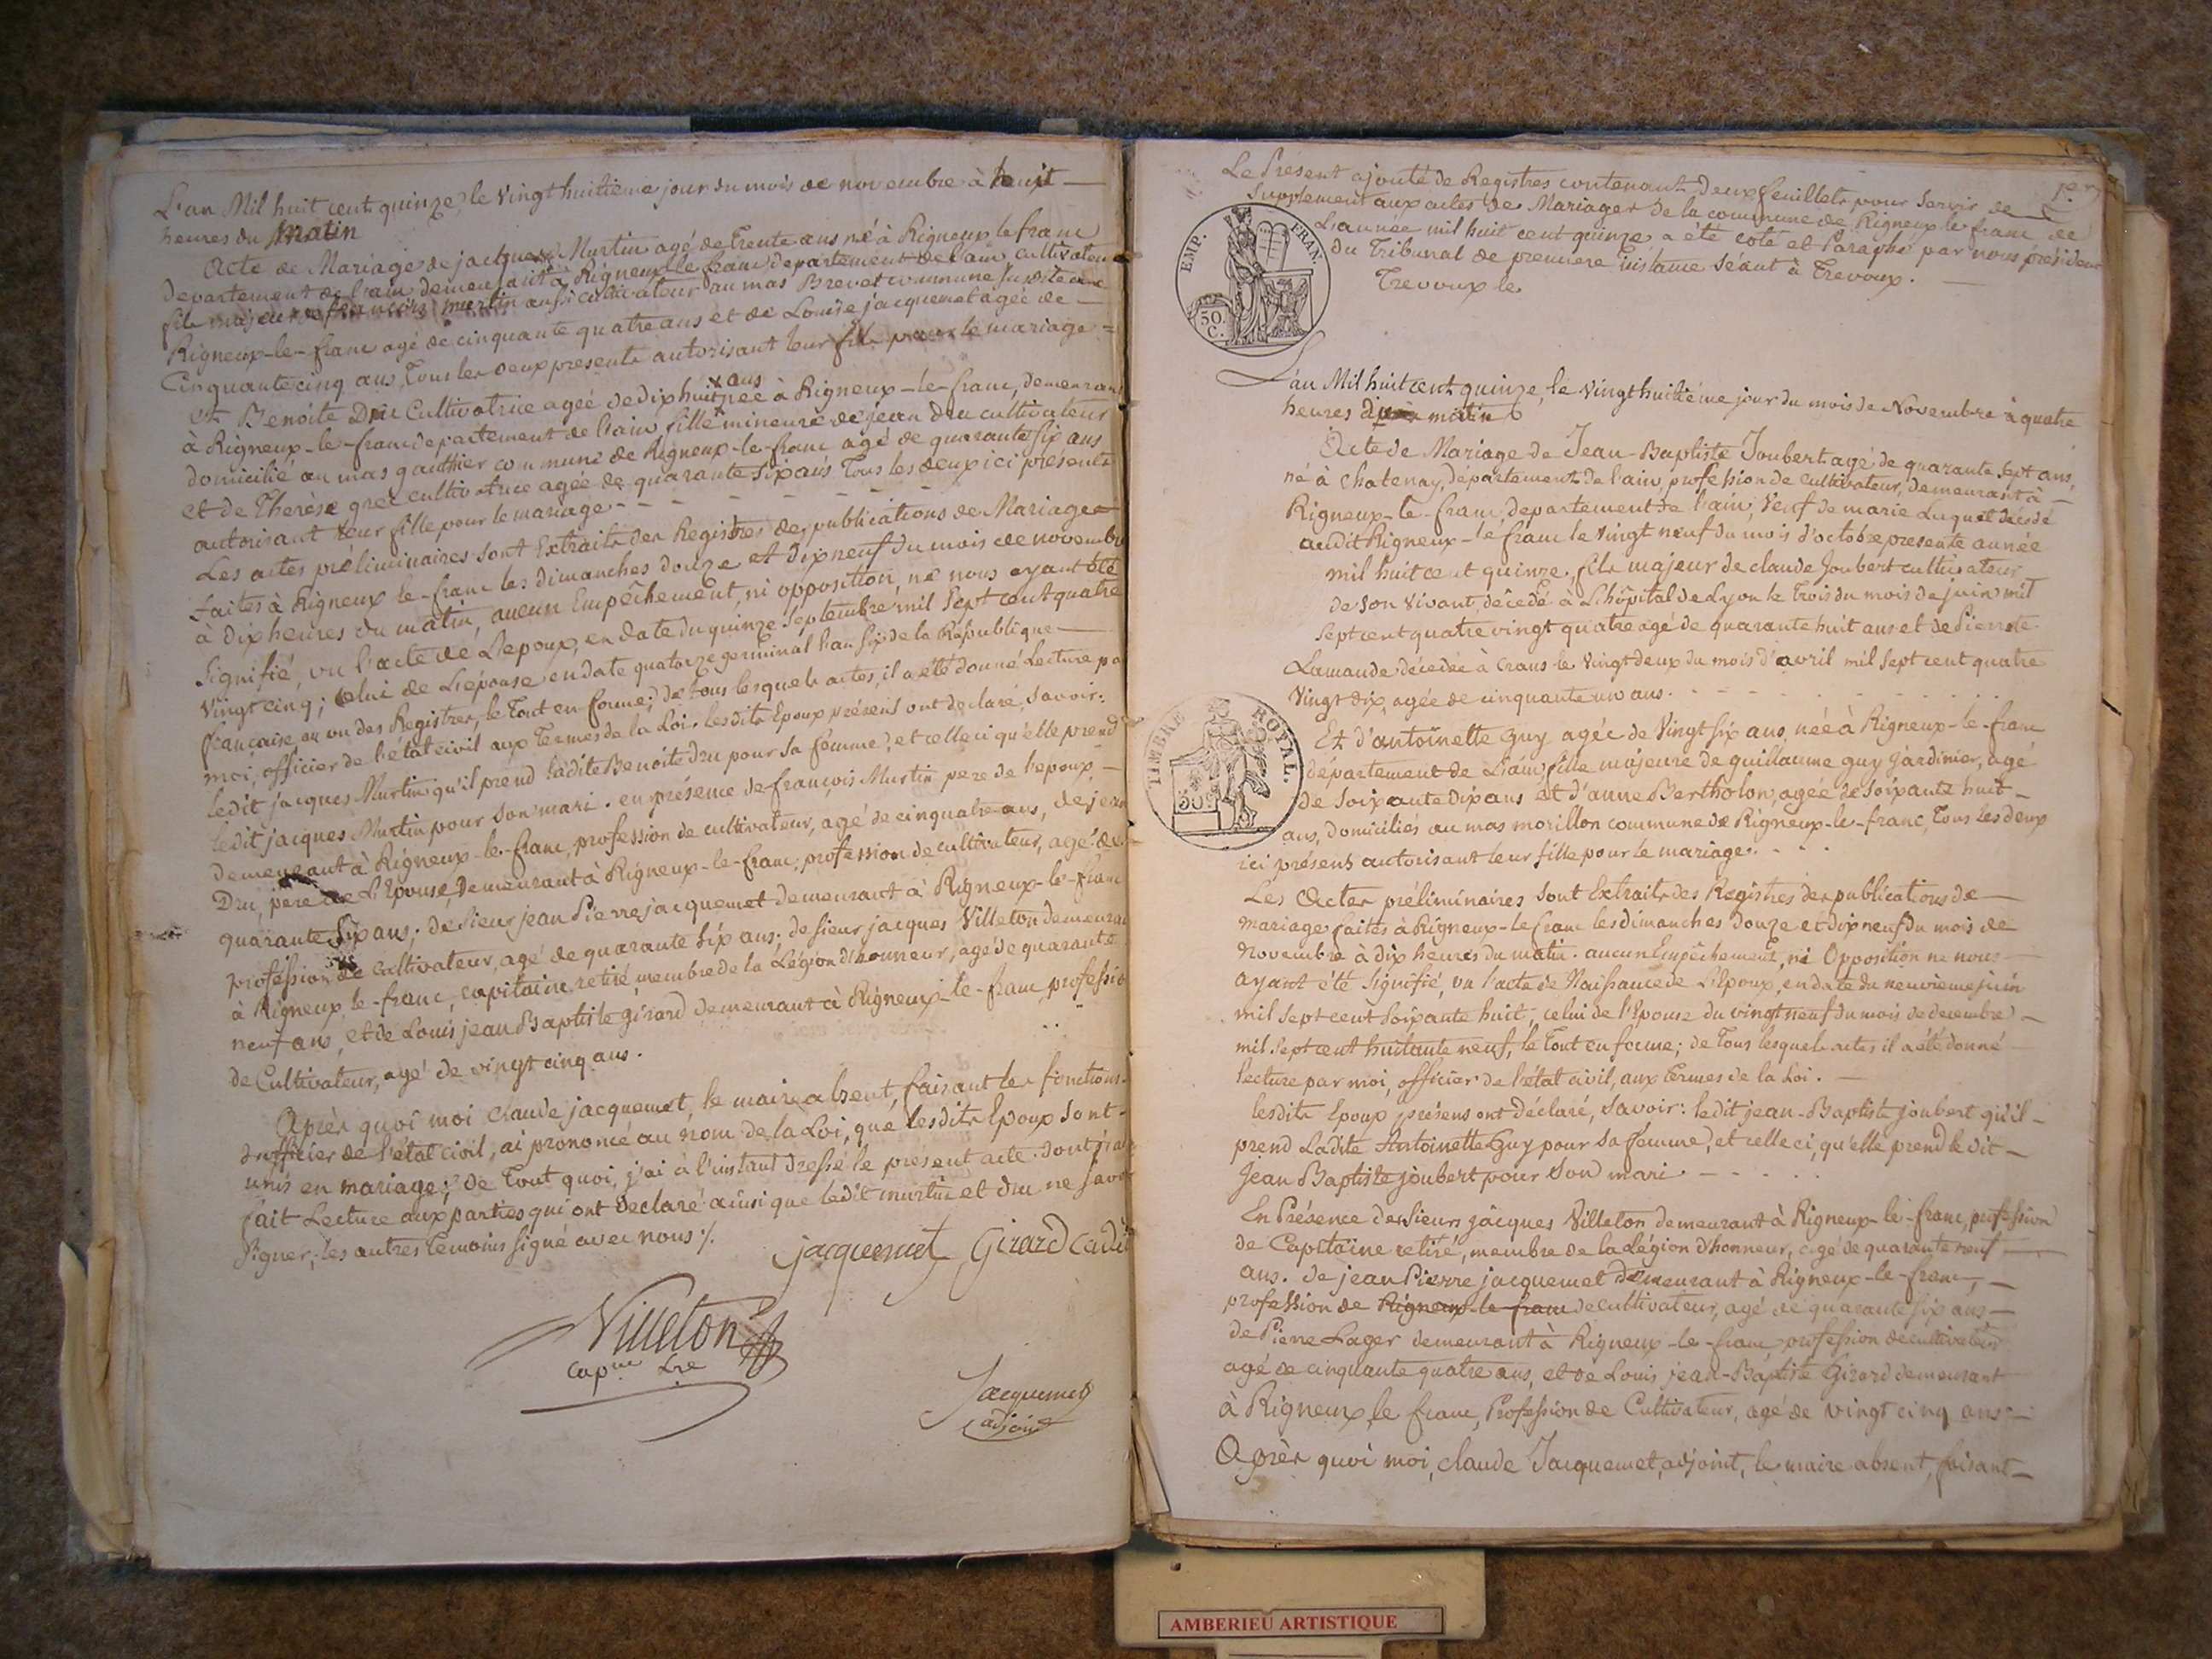 L'an Mil huit cent quinze, le vingt huitieme jour du mois de novembre à huit
heures du matin
Acte de Mariage de jacques Murtin agé de trente ans né à Rigneux le franc
departement de l'ain demeurant à Rigneux le franc departement de l'ain cultivateur
fils majeur de françois murtin aussi cultivateur au mas Brevet commune susdite de
Rigneux-le-franc agé de cinquante quatre ans et de Louise jacquemet agée de
Cinquante cinq ans, Tous les deux presents autorisant leur fils pour le mariage =
Et Benoite Dru Cultivatrice ageé de dix huit ans née à Rigneux-le-franc, demeurant
à Rigneux-le-franc departement de l'ain fille mineure de jean dru cultivateur
domicilié au mas gauthier commune de Rigneux-le-franc agé de quarante six ans
et de Therèse grec cultivatrice agée de quarante six ans Tous les deux ici présents
autorisant leur fille pour le mariage - -
Les actes préliminaires sont Extraits des Registres des publications de Mariages
faites à Rigneux le-franc les dimanches douze et dix neuf du mois de novembre
à dix heures du matin, aucun Empêchement, ni opposition, ne nous ayant été
Signifié, vu l'acte de L'epoux, en date du quinze Septembre mil Sept cent quatre
vingt cinq; celui de L'epouse en date quatorze germinal l'an six de la République
française, au vu des Registres, le tout en forme; de tous lesquels actes, il a été donné Lecture par
moi, officier de l'état civil aux Termes de la Loi. lesdits Epoux présens ont declaré, savoir:
ledit jacques Murtin qu'il prend ladite Benoite dru pour sa femme, et celle ci qu'elle prend
ledit jacques Murtin pour son mari. en présence de françois Murtin pere de l'epoux,
demeurant à Rigneux-le-franc, profession de cultivateur, agé de cinquatre ans, de jean
Dru, pere de L'Epouse, demeurant à Rigneux-le-franc, profession de cultivateur, agé de
quarante Six ans; de sieur jean Pierre jacquemet demeurant à Rigneux-le-franc
profession de Cultivateur, agé de quarante Six ans; de sieur jacques Villeton demeurant
à Rigneux le-franc, capitaine retiré membre de la Légion d'honneur, agé de quarante
neuf ans, et de Louis jean Baptiste girard demeurant à Rigneux-le-franc profession
de Cultivateur, agé de vingt cinq ans.
Après quoi moi claude jacquemet, le maire absent, faisant les fonctions
d'officier de l'état civil, ai prononcé au nom de la Loi, que lesdits Epoux sont
unis en mariage; de tout quoi, j'ai à l'instant dressé le présent acte dont j'ai
fait Lecture aux parties qui ont déclaré ainsi que ledit murtin et dru ne savoir
Signer; les autres temoins signé avec nous ./.
jacquemet Girard Cadet
Villeton
Cap.ne Lre
Jacquemet
adjoint
1er
Le Present ajouté de Registres contenant deux feuillets pour servir de
Supplement aux actes de Mariages de la commune de Rigneux le franc de
L'année mil huit cent quinze a été coté et Paraphé par nous président
du Tribunal de premiere instance séant à Trevoux.
Trevoux le
EMP. FRAN.
50.
C.
L'an Mil huit cent quinze, le vingt huitiéme jour du mois de Novembre à quatre
heures du matin
Acte de Mariage de Jean-Baptiste Joubert agé de quarante sept ans,
né à Chatenay, département de l'ain, profession de cultivateur, demeurant à
Rigneux-le-franc, departement de l'ain, Veuf de marie Luquet décédé
audit Rigneux-le franc le vingt neuf du mois d'octobre presente année
mil huit cent quinze. fils majeur de claude Joubert cultivateur
de son vivant, décédé à L'hôpital de Lyon le Trois du mois de juin mil
sept cent quatre vingt quatre agé de quarante huit ans et de Pierrete
Lamande décédée à Crans le vingt deux du mois d'avril mil sept cent quatre
vingt dix, agée de cinquante un ans.
TIMBRE ROYAL.
50 c
Et d'antoinette Guy agée de Vingt six ans, née à Rigneux-le-franc
département de L'ain fille majeure de guillaume guy jardinier, agé
de soixante dix ans et d'anne Bertholon, agée de soixante huit
ans, domiciliés au mas morillon commune de Rigneux-le-franc, tous les deux
ici présens autorisant leur fille pour le mariage.
Les Actes préliminaires sont Extraits des Registres des publications de
mariage faites à Rigneux-le franc les dimanches douze et dix neuf du mois de
Novembre à dix heures du matin. aucun Empêchement, ni Opposition ne nous
ayant été signifié, vu l'acte de Naissance de L'Epoux, en date du neuvieme juin
mil sept cent soixante huit, celui de l'Epouse du vingt neuf du mois de decembre
mil sept cent huitante neuf, le tout en forme; de tous lesquels actes il a été donné
lecture par moi, officier de l'état civil, aux termes de la Loi.
lesdits Epoux présens ont déclaré, savoir: ledit jean-Baptiste joubert qu'il
prend Ladite Antoinette Guy pour sa femme, et celle ci, qu'elle prend le dit
Jean Baptiste joubert pour son mari
En Présence des Sieurs jacques Villeton demeurant à Rigneux-le-franc, profession
de Capitaine retiré, membre de la Légion d'honneur, agé de quarante neuf
ans. de jean Pierre jacquemet demeurant à Rigneux-le-franc,
profession de Rigneux-le franc de cultivateur, agé de quarante six ans
de Pierre Lager demeurant à Rigneux-le-franc profession de cultivateur
agé de cinquante quatre ans, et de Louis jean-Baptiste Girard demeurant
à Rigneux le franc, Profession de Cultivateur, agé de vingt cinq ans
Après quoi moi, claude Jacquemet, adjoint, le maire absent, faisant
AMBERIEU ARTISTIQUE